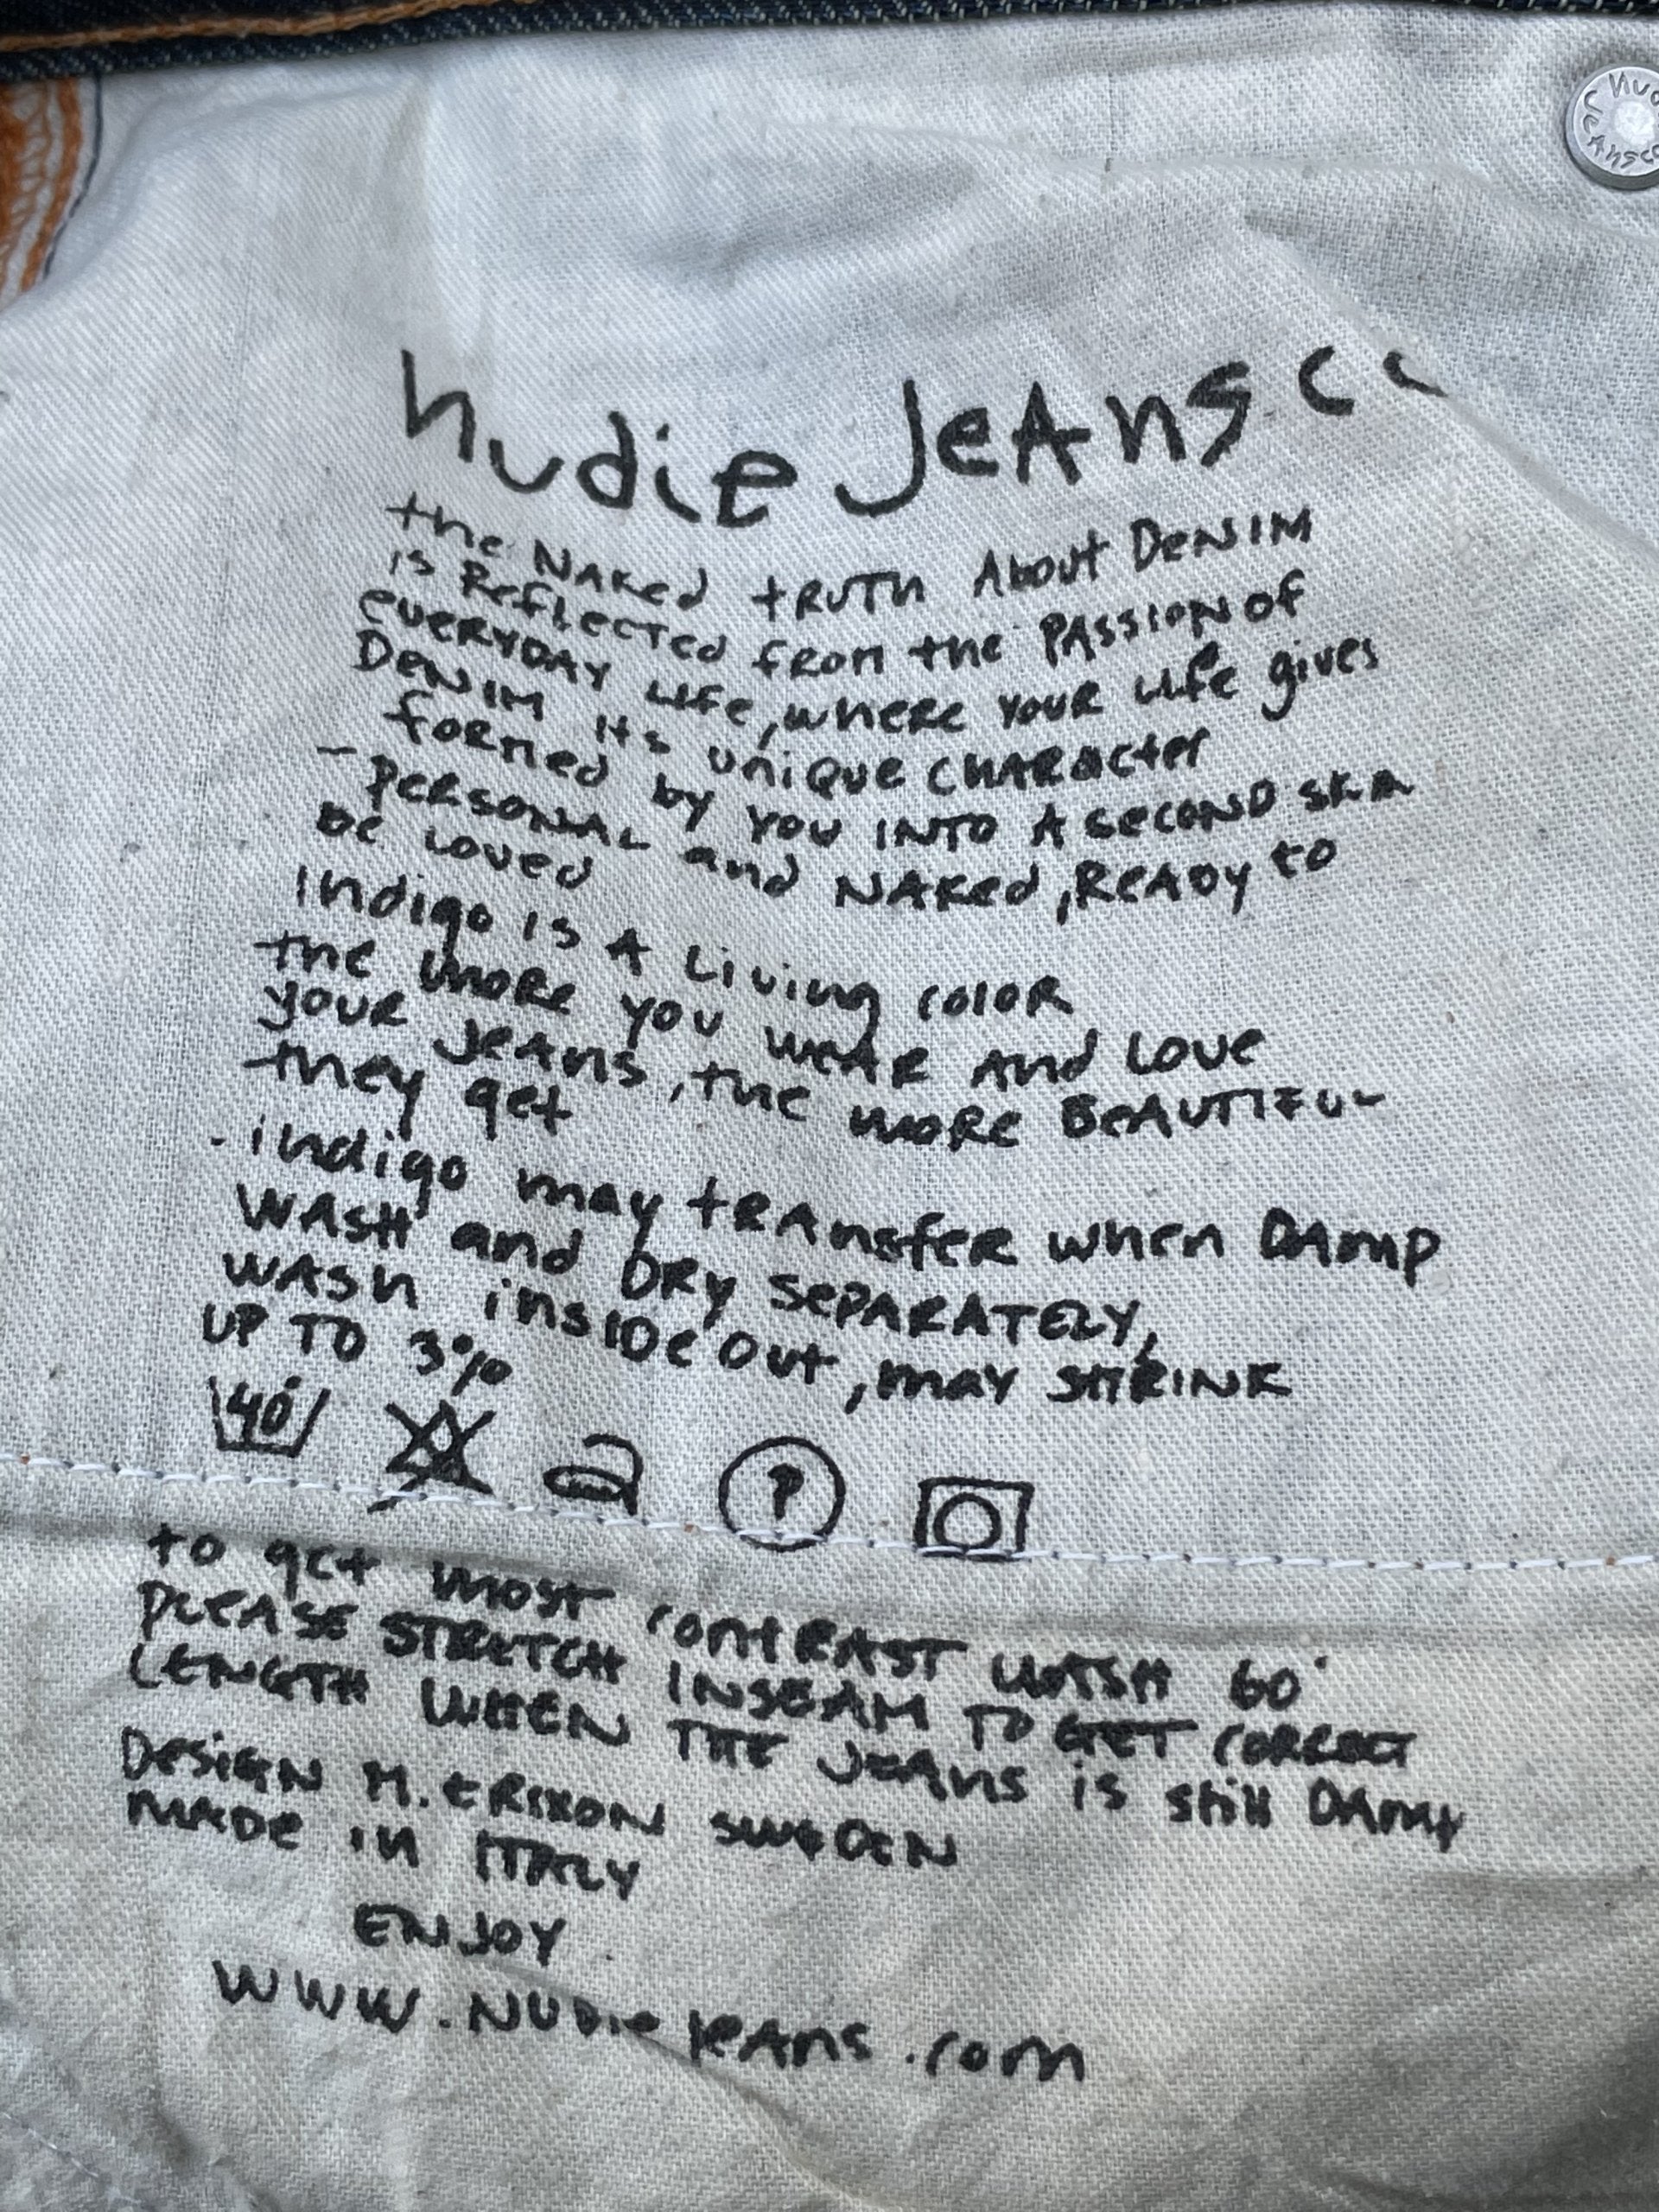 nudie JeAns cc
the NAKed tRUTh About DeNIM
is Reflected from the PASSION of
everyday Life, where your Life gives
DeNIM its unique CHARacter
formed by you INTO A second skin
- Personal and NAKed, ReADy to
be Loved
Indigo is A Living color
the more you weAR and Love
your JeAns, the more BeAUTIFUL
they get
- indigo may tRAnsfeR when DAmp
WASH and DRy SePARATELY,
WASh insIDe out, may SHRINK
UP TO 3%
40°
P
to get most contRAST WASH 60°
PLEASE STRETCH INSEAM TO GET CORRECT
LENGTH WHEN THE JeAns is still DAmp
DESIGN M. ERIXON SWEDEN
MADE in ITALY
ENJOY
WWW.NUDieJeAns.com
nud
JeAnsco